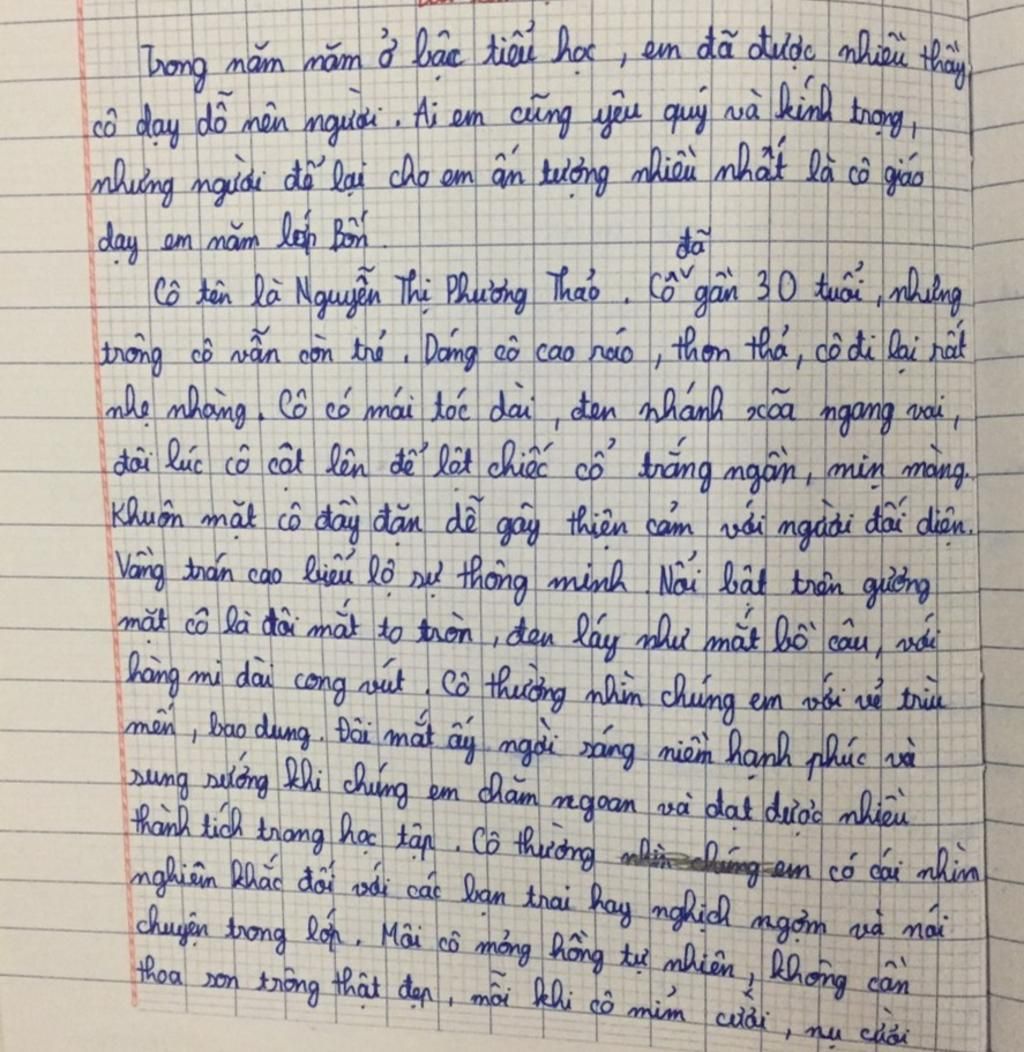 Trong năm năm ở bậc tiểu học, em đã được nhiều thầy
cô dạy dỗ nên người. Ai em cũng yêu quý và kính trọng,
nhưng người để lại cho em ấn tượng nhiều nhất là cô giáo
dạy em năm lớp Bốn.
đã
Cô tên là Nguyễn Thị Phương Thảo. Cô gần 30 tuổi, nhưng
trông cô vẫn còn trẻ. Dáng cô cao ráo, thon thả, cô đi lại rất
nhẹ nhàng. Cô có mái tóc dài, đen nhánh xõa ngang vai,
đôi lúc cô cột lên để lột chiếc cổ trắng ngần, mịn màng.
Khuôn mặt cô đầy đặn dễ gây thiện cảm với người đối diện.
Vầng trán cao biểu lộ sự thông minh. Nổi bật trên gương
mặt cô là đôi mắt to tròn, đen láy như mắt bồ câu, với
hàng mi dài cong vút. Cô thường nhìn chúng em với vẻ trìu
mến, bao dung. Đôi mắt ấy ngời sáng niềm hạnh phúc và
sung sướng khi chúng em chăm ngoan và đạt được nhiều
thành tích trong học tập. Cô thường nhìn chúng em có cái nhìn
nghiêm khắc đối với các bạn trai hay nghịch ngợm và nói
chuyện trong lớp. Môi cô mỏng hồng tự nhiên, không cần
thoa son trông thật đẹp, mỗi khi cô mỉm cười, nụ cười